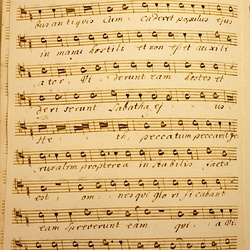 bus antiquis Cum caderet populus ejus
in manu hostili et non esset auxili
ator Viderunt eam hostes et
deriserunt Sabatha ejus
He th peccatum peccavit Je
rusalem propterea instabilis facta
est omnes qui glorificabant
eam spreverunt eam quia